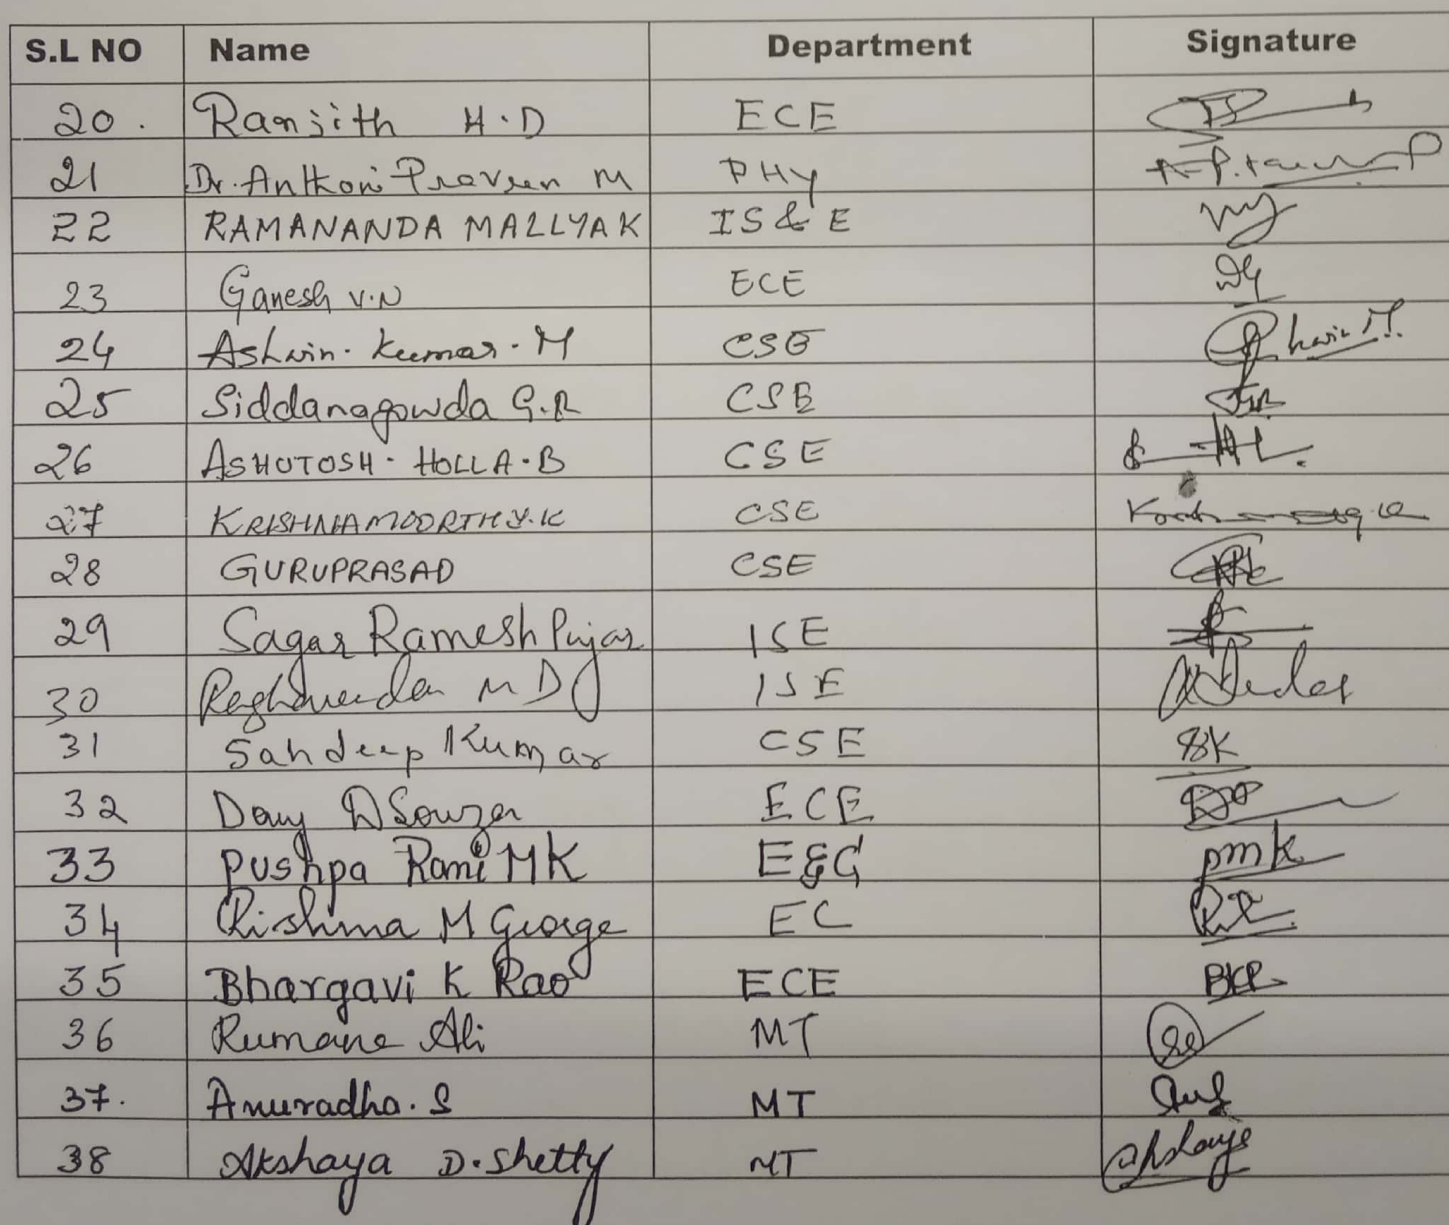 S.L NO Name Department Signature
20. Ranjith H.D ECE
21 Dr. Anthoni Praveen M PHY
22 RAMANANDA MALLYA K IS & E
23 Ganesh V.N ECE
24 Ashwin. Kumar. M CSE
25 Siddanagowda G.R CSE
26 ASHUTOSH. HOLLA. B CSE
27 KRISHNAMOORTHY.K CSE
28 GURUPRASAD CSE
29 Sagar Ramesh Pujar ISE
30 M D ISE
31 Sandeep Kumar CSE SK
32 DSouza ECE
33 Pushpa Rani MK pmk
34 Rishma M George EC
35 Bhargavi K Rao ECE BKR
36 Rumana Ali MT
37. Anuradha. S MT
38 Akshaya D. Shetty MT Akshaya